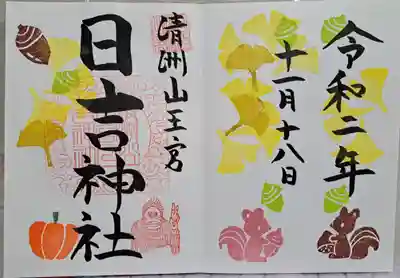 令和二年
十一月十八日
清洲山王宮
日吉神社